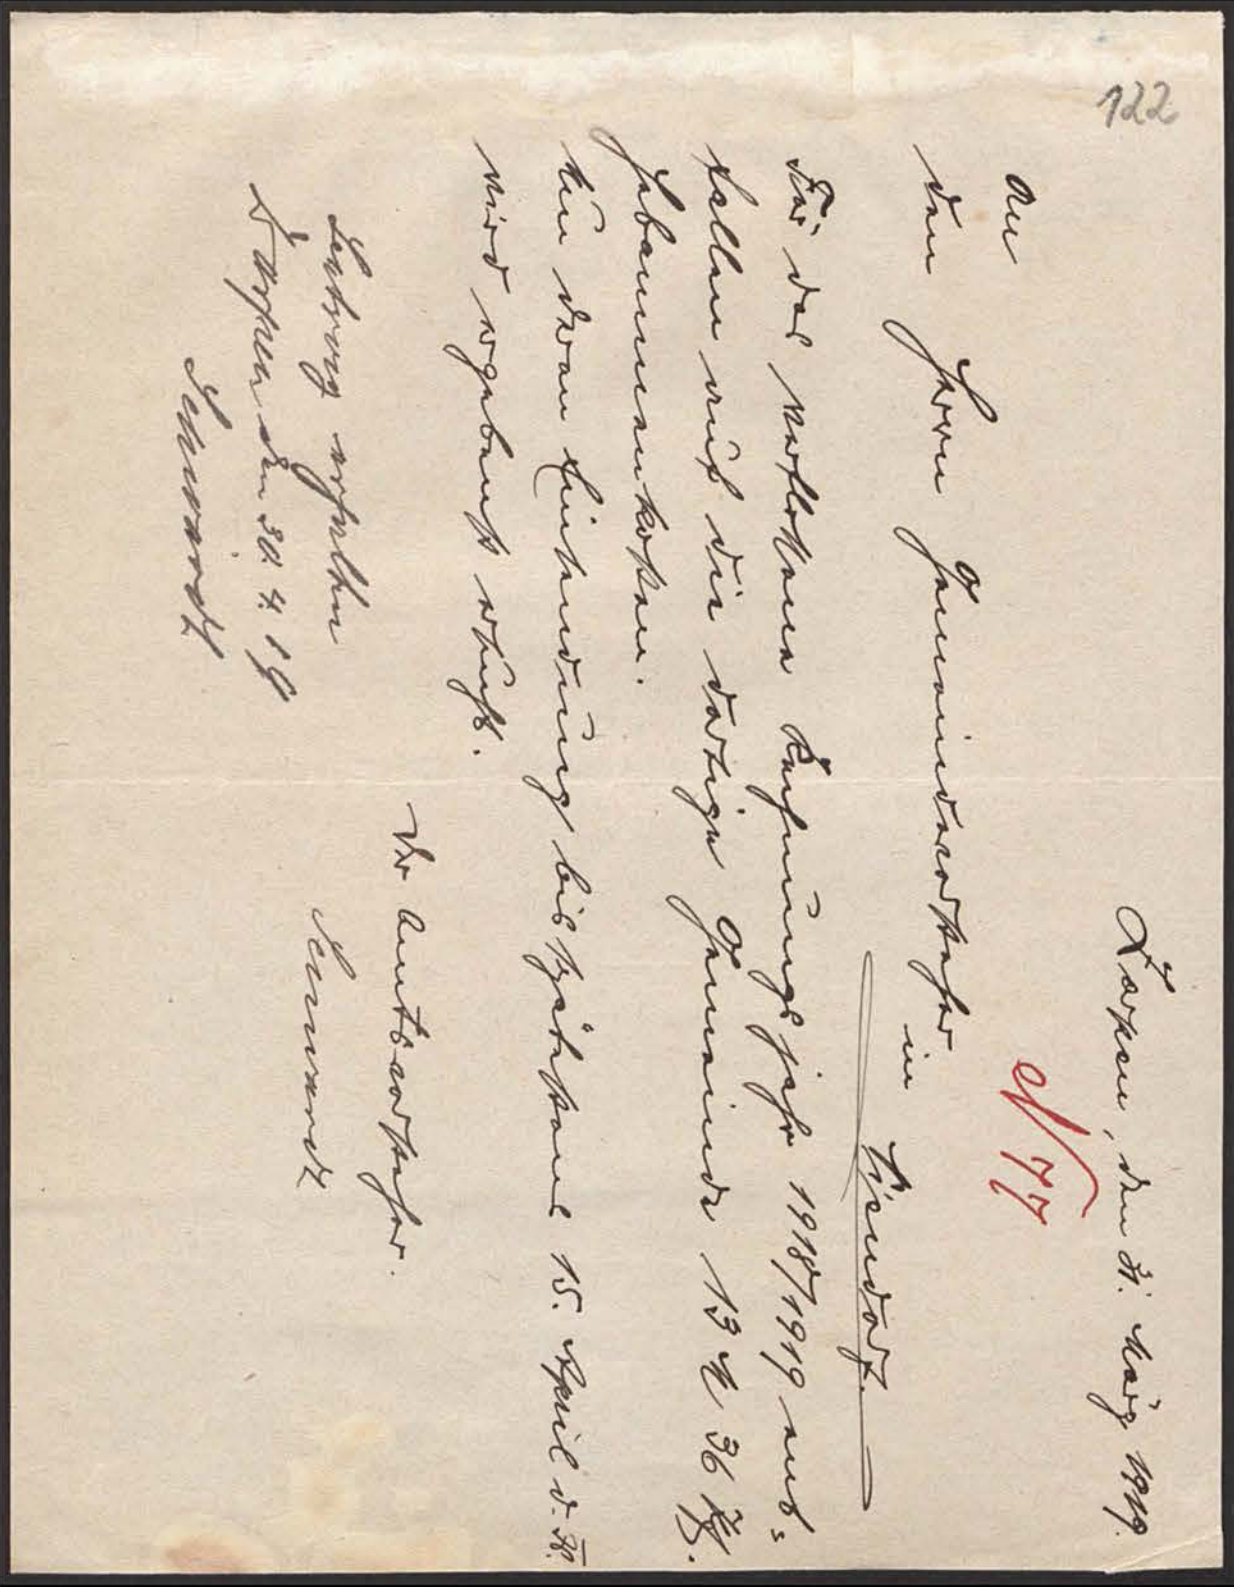 122
Zarpen, den 31. März 1919.
N 77
An
den Herrn Gemeindevorsteher
in
Für das verflossene Rechnungsjahr 1918/1919 ent-
fallen auf die dortige Gemeinde 13 M 36 Pf.
Hebammenkosten.
Um deren Einsendung bis spätestens 15. April d. Js.
wird ergebenst ersucht.
Der Amtsvorsteher.
Betrag erhalten
Zarpen den 30. 4. 19